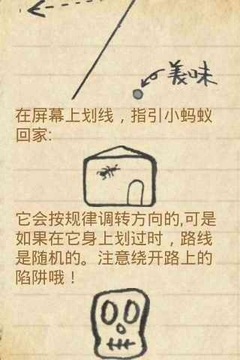 美味
在屏幕上划线，指引小蚂蚁
回家:
它会按规律调转方向的,可是
如果在它身上划过时，路线
是随机的。注意绕开路上的
陷阱哦！